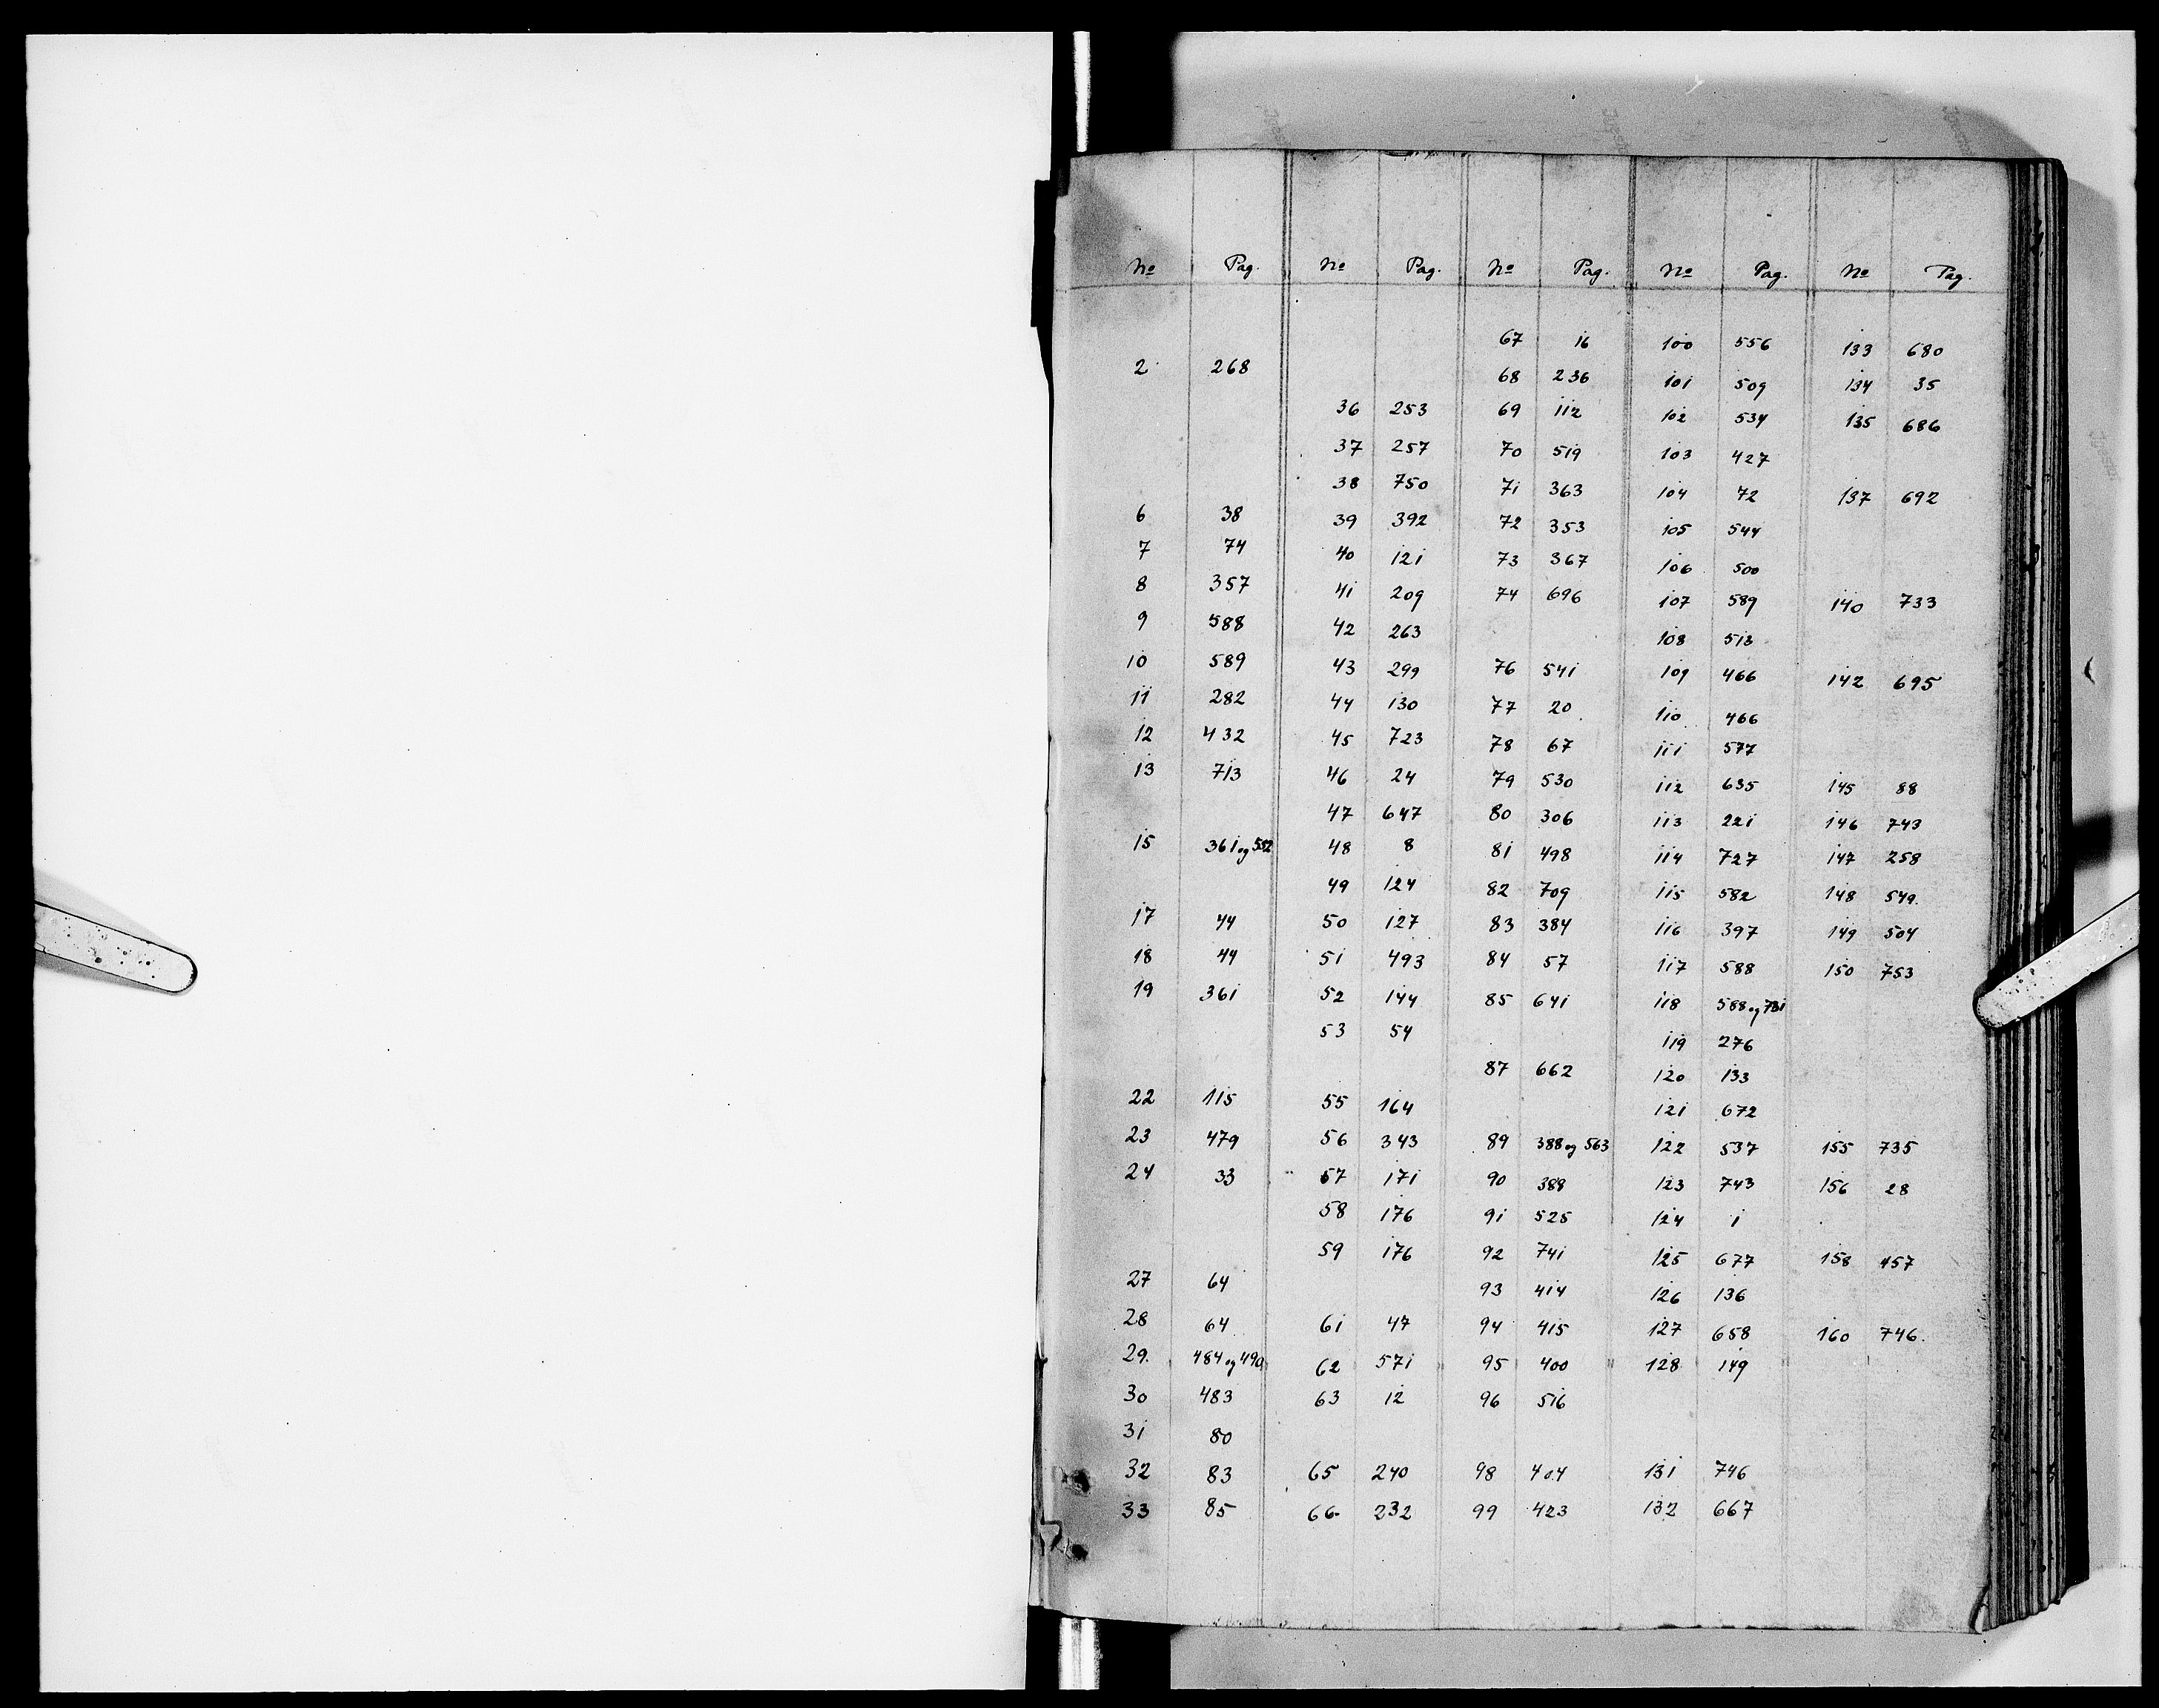 No Pag. No Pag. No Pag. No Pag. No Pag.
67 16 100 556 133 680
2 268 68 236 101 509 134 35
36 253 69 112 102 534 135 686
37 257 70 519 103 427
38 750 71 363 104 72 137 692
6 38 39 392 72 353 105 544
7 74 40 121 73 367 106 500
8 357 41 209 74 696 107 589 140 733
9 588 42 263 108 513
10 589 43 299 76 541 109 466 142 695
11 282 44 130 77 20 110 466
12 432 45 723 78 67 111 577
13 713 46 24 79 530 112 635 145 88
47 647 80 306 113 221 146 743
15 361 og 552 48 8 81 498 114 727 147 258
49 124 82 709 115 582 148 549.
17 44 50 127 83 384 116 397 149 504
18 44 51 493 84 57 117 588 150 753
19 361 52 144 85 641 118 588 og 731
53 54 119 276
87 662 120 133
22 115 55 164 121 672
23 479 56 343 89 388 og 563 122 537 155 735
24 33 57 171 90 388 123 743 156 28
58 176 91 525 124 1
59 176 92 741 125 677 158 457
27 64 93 414 126 136
28 64 61 47 94 415 127 658 160 746.
29. 484 og 490 62 571 95 400 128 149
30 483 63 12 96 516
31 80
32 83 65 240 98 404 131 746
33 85 66 232 99 423 132 667